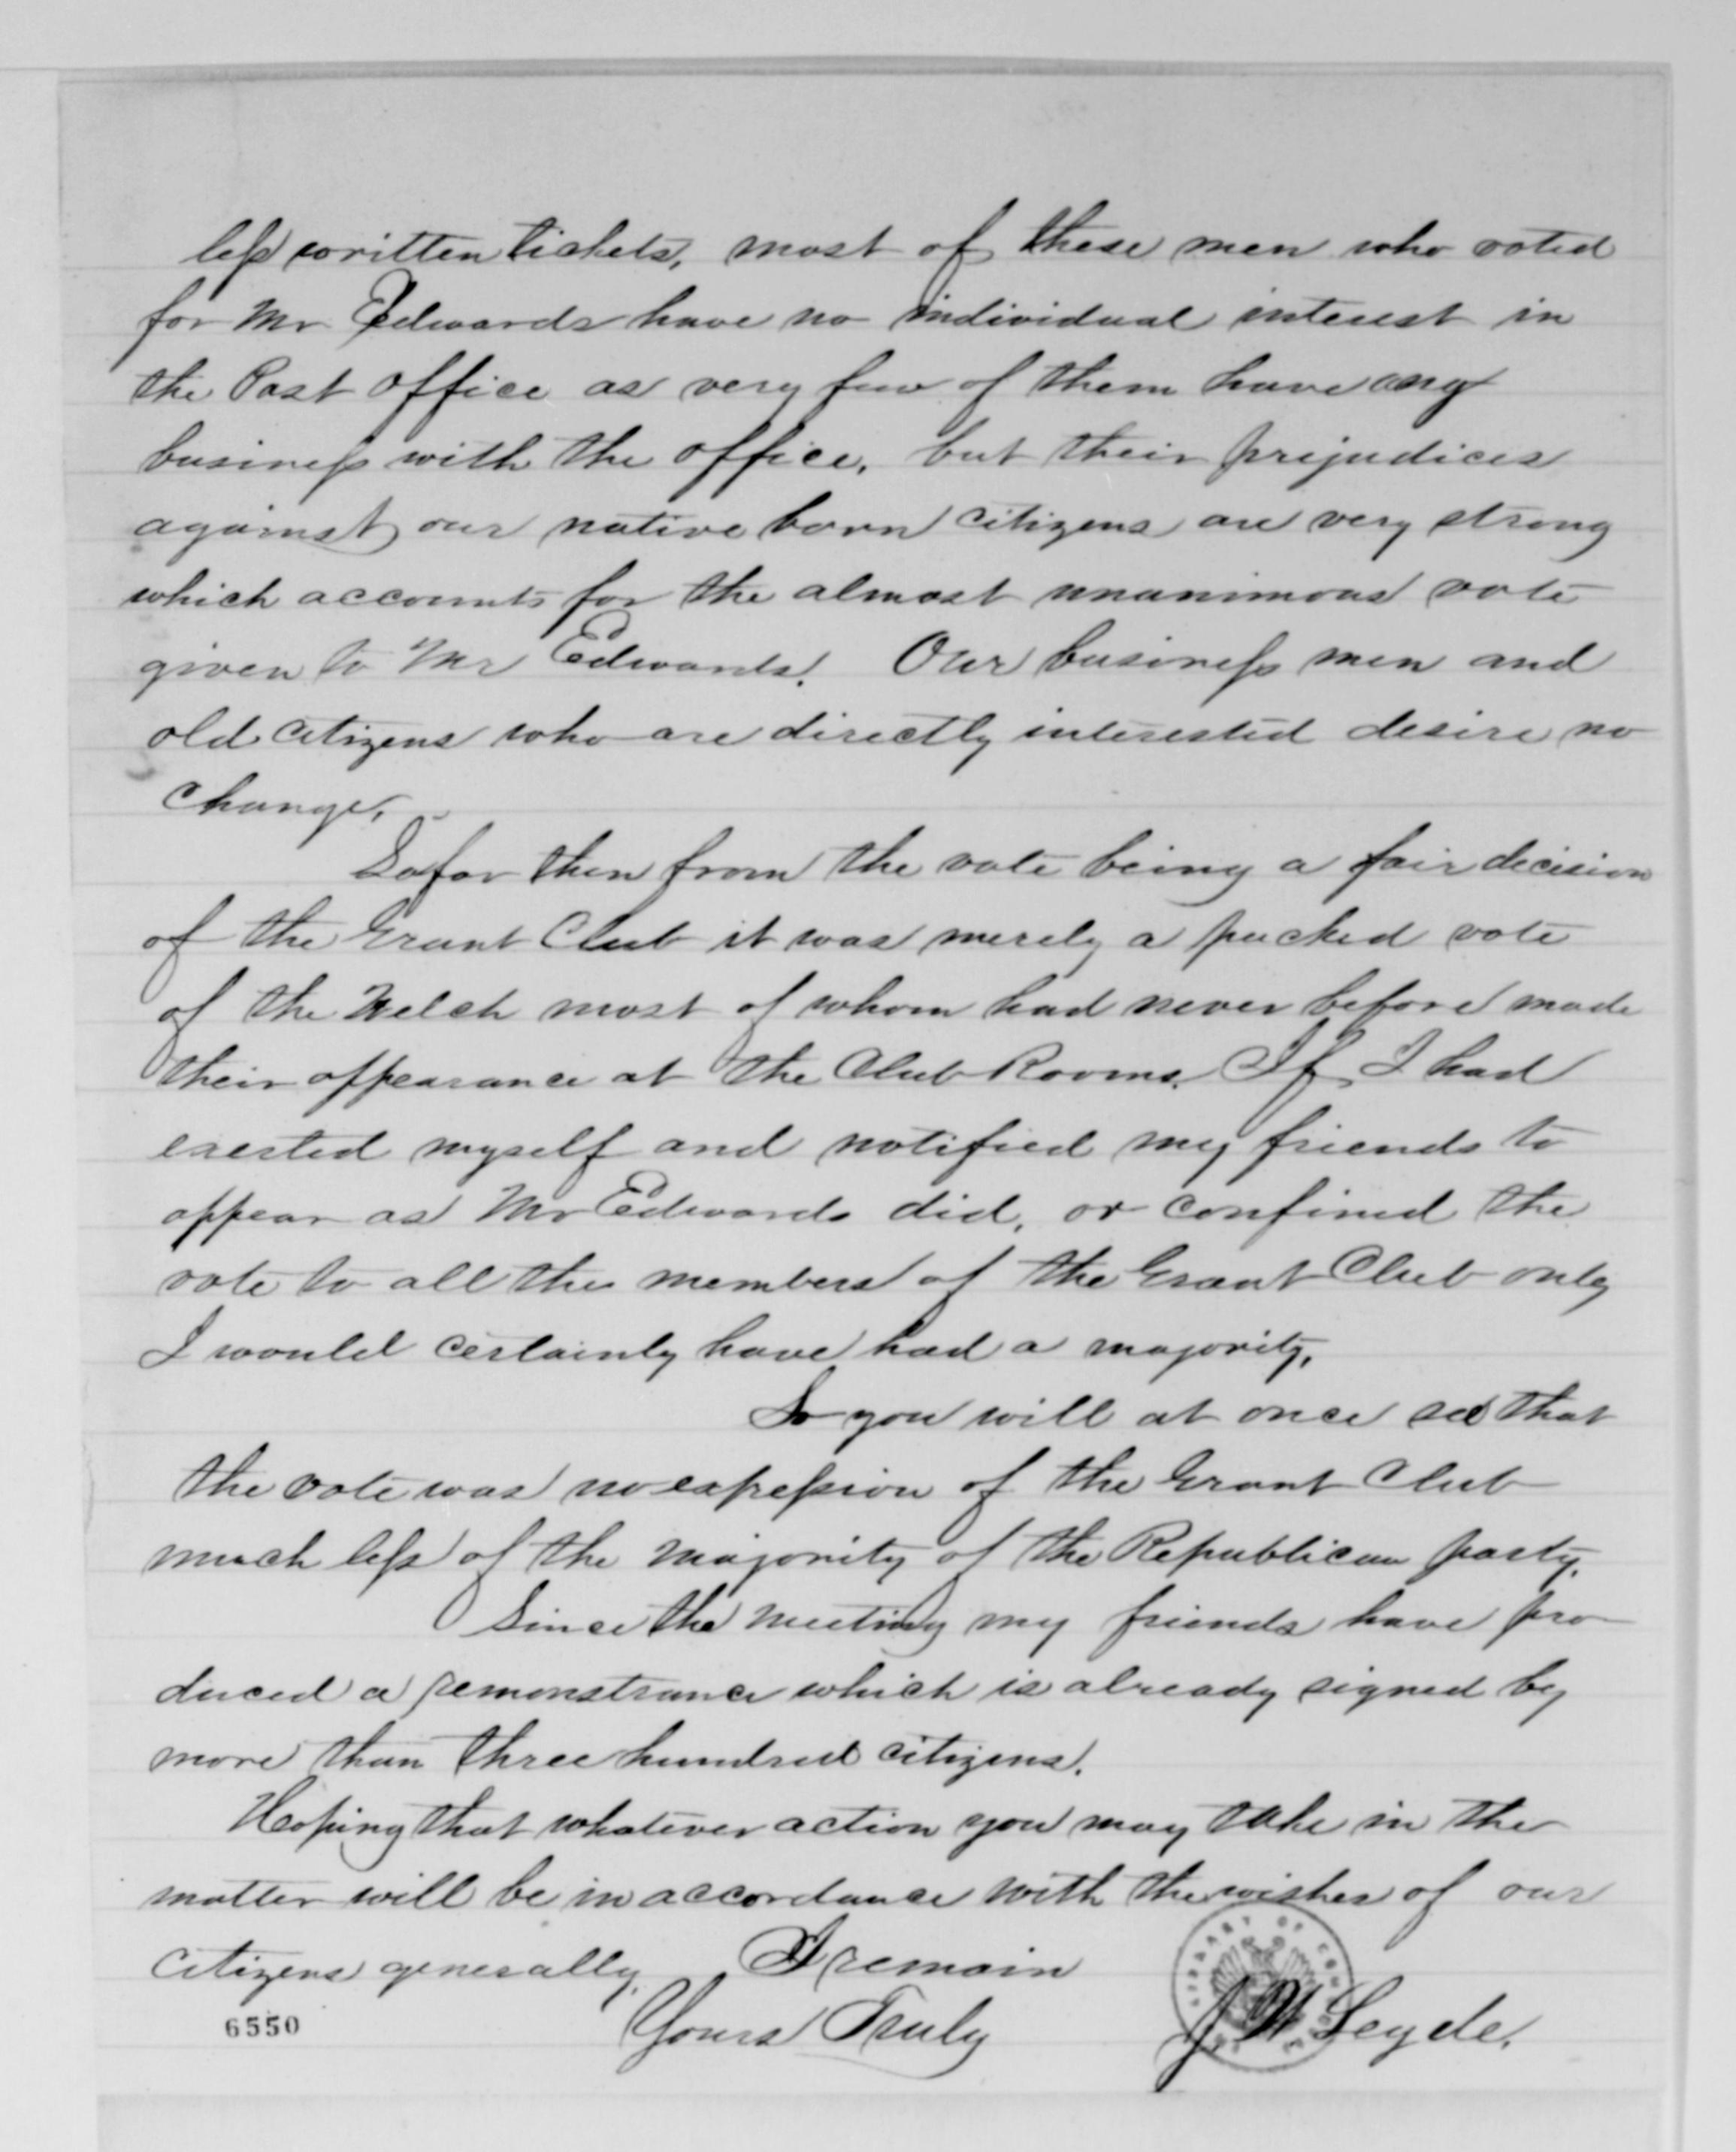 less written tickets, most of these men who voted
for Mr Edwards have no individual interest in
the Post office as very few of them have any
business with the office, but their prejudices
against our native born citizens are very strong
which accounts for the almost unanimous vote
given to Mr Edwards. Our business men and
old citizens who are directly interested desire no
change.
So far then from the vote being a fair decision
of the Grant Club it was merely a packed vote
of the Welch most of whom had never before made
their appearance at the Club Rooms. If I had
exerted myself and notified my friends to
appear as Mr Edwards did, or confined the
vote to all the members of the Grant Club only
I would certainly have had a majority.
So you will at once see that
the vote was no expression of the Grant Club
much less of the majority of the Republican party.
Since the meeting my friends have pro
duced a remonstrance which is already signed by
more than three hundred citizens.
Hoping that whatever action you may take in the
matter will be in accordance with the wishes of our
citizens generally. I remain
Yours Truly J. W. Seyde.
6550
LIBRARY OF CONGRESS